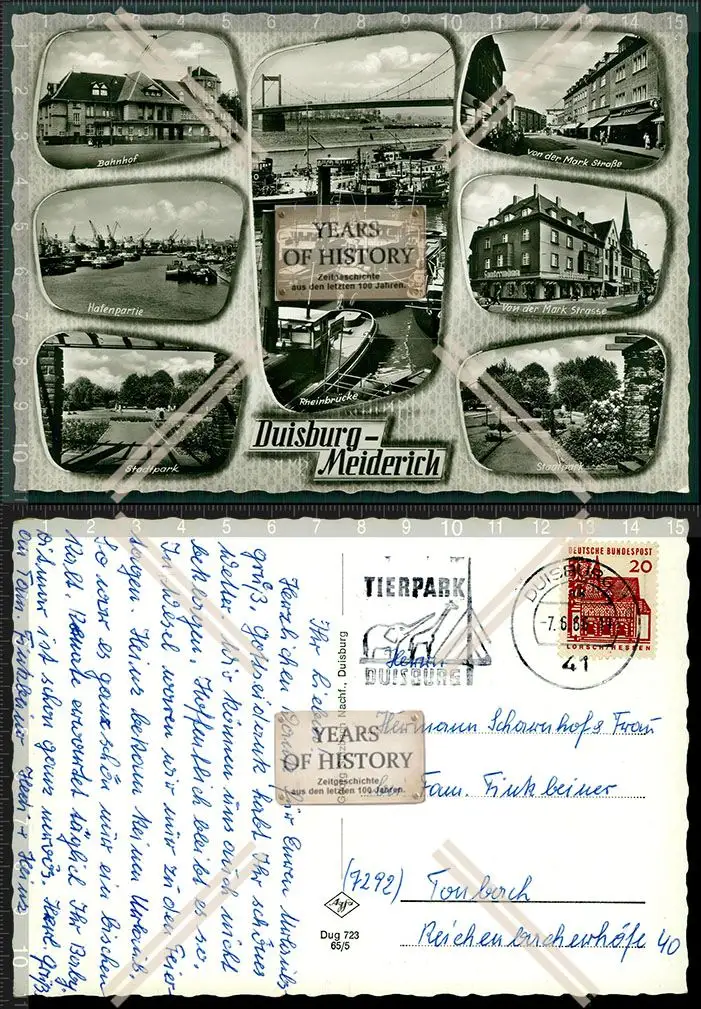 1 2 3 4 5 6 7 8 9 10 11 12 13 14 15
Bahnhof
Von der Mark Straße
YEARS
OF HISTORY
Zeitgeschichte
aus den letzten 100 Jahren.
Hafenpartie
Von der Mark Strasse
Rheinbrücke
Stadtpark
Stadtpark
Duisburg-
Meiderich
1 2 3 4 5 6 7 8 9 10 11 12 13 14 15
DEUTSCHE BUNDESPOST
20
LORSCH/HESSEN
TIERPARK
DUISBURG
DUISBURG
41
Herrn
Hermann Scharnhof & Frau
bei Fam. Finkbeiner
(7292) Tonbach
Reichenbacherhöfe 40
YEARS
OF HISTORY
Zeitgeschichte
aus den letzten 100 Jahren.
Nachf., Duisburg
Agfa
Dug 723
65/5
Ihr Lieben
Herzlichen Dank für Euren Urlaubs
gruß. Gottseidank habt Ihr schönes
Wetter. Wir können uns auch nicht
beklagen. Hoffentlich bleibt es so.
In Wesel waren wir nur zu den Feier-
tagen. Heinz bekam keinen Urlaub.
So war es ganz schön nur ein bischen
kalt. Renate erwartet täglich Ihr Baby.
Dietmar ist schon ganz nervös. Herzl. Grüße
an Fam. Finkbeiner Heinz